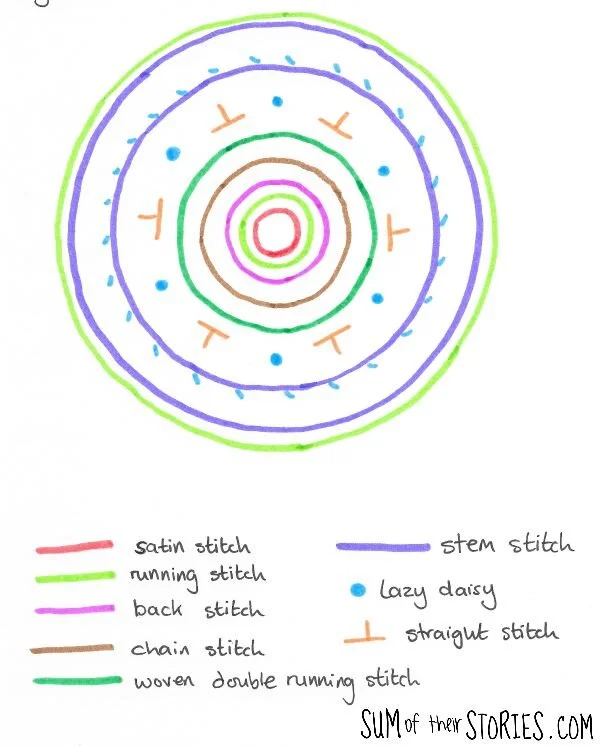 satin stitch
running stitch
back stitch
chain stitch
woven double running stitch
stem stitch
lazy daisy
straight stitch
SUM of their STORIES.COM